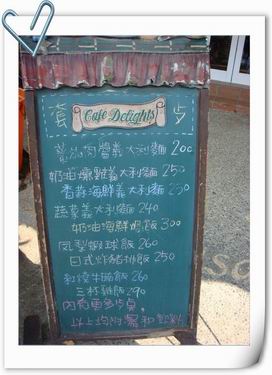 套 Cafe Delights 步
蕃茄肉醬義大利麵 200
奶油燻雞義大利麵 250
香蒜海鮮義大利麵 250
蔬菜義大利麵 240
奶油海鮮焗飯 300
鳳梨蝦球飯 260
日式炸豬排飯 250
紅燒牛腩飯 260
三杯雞飯 290
內有更多
以上均附 湯 和 飲料